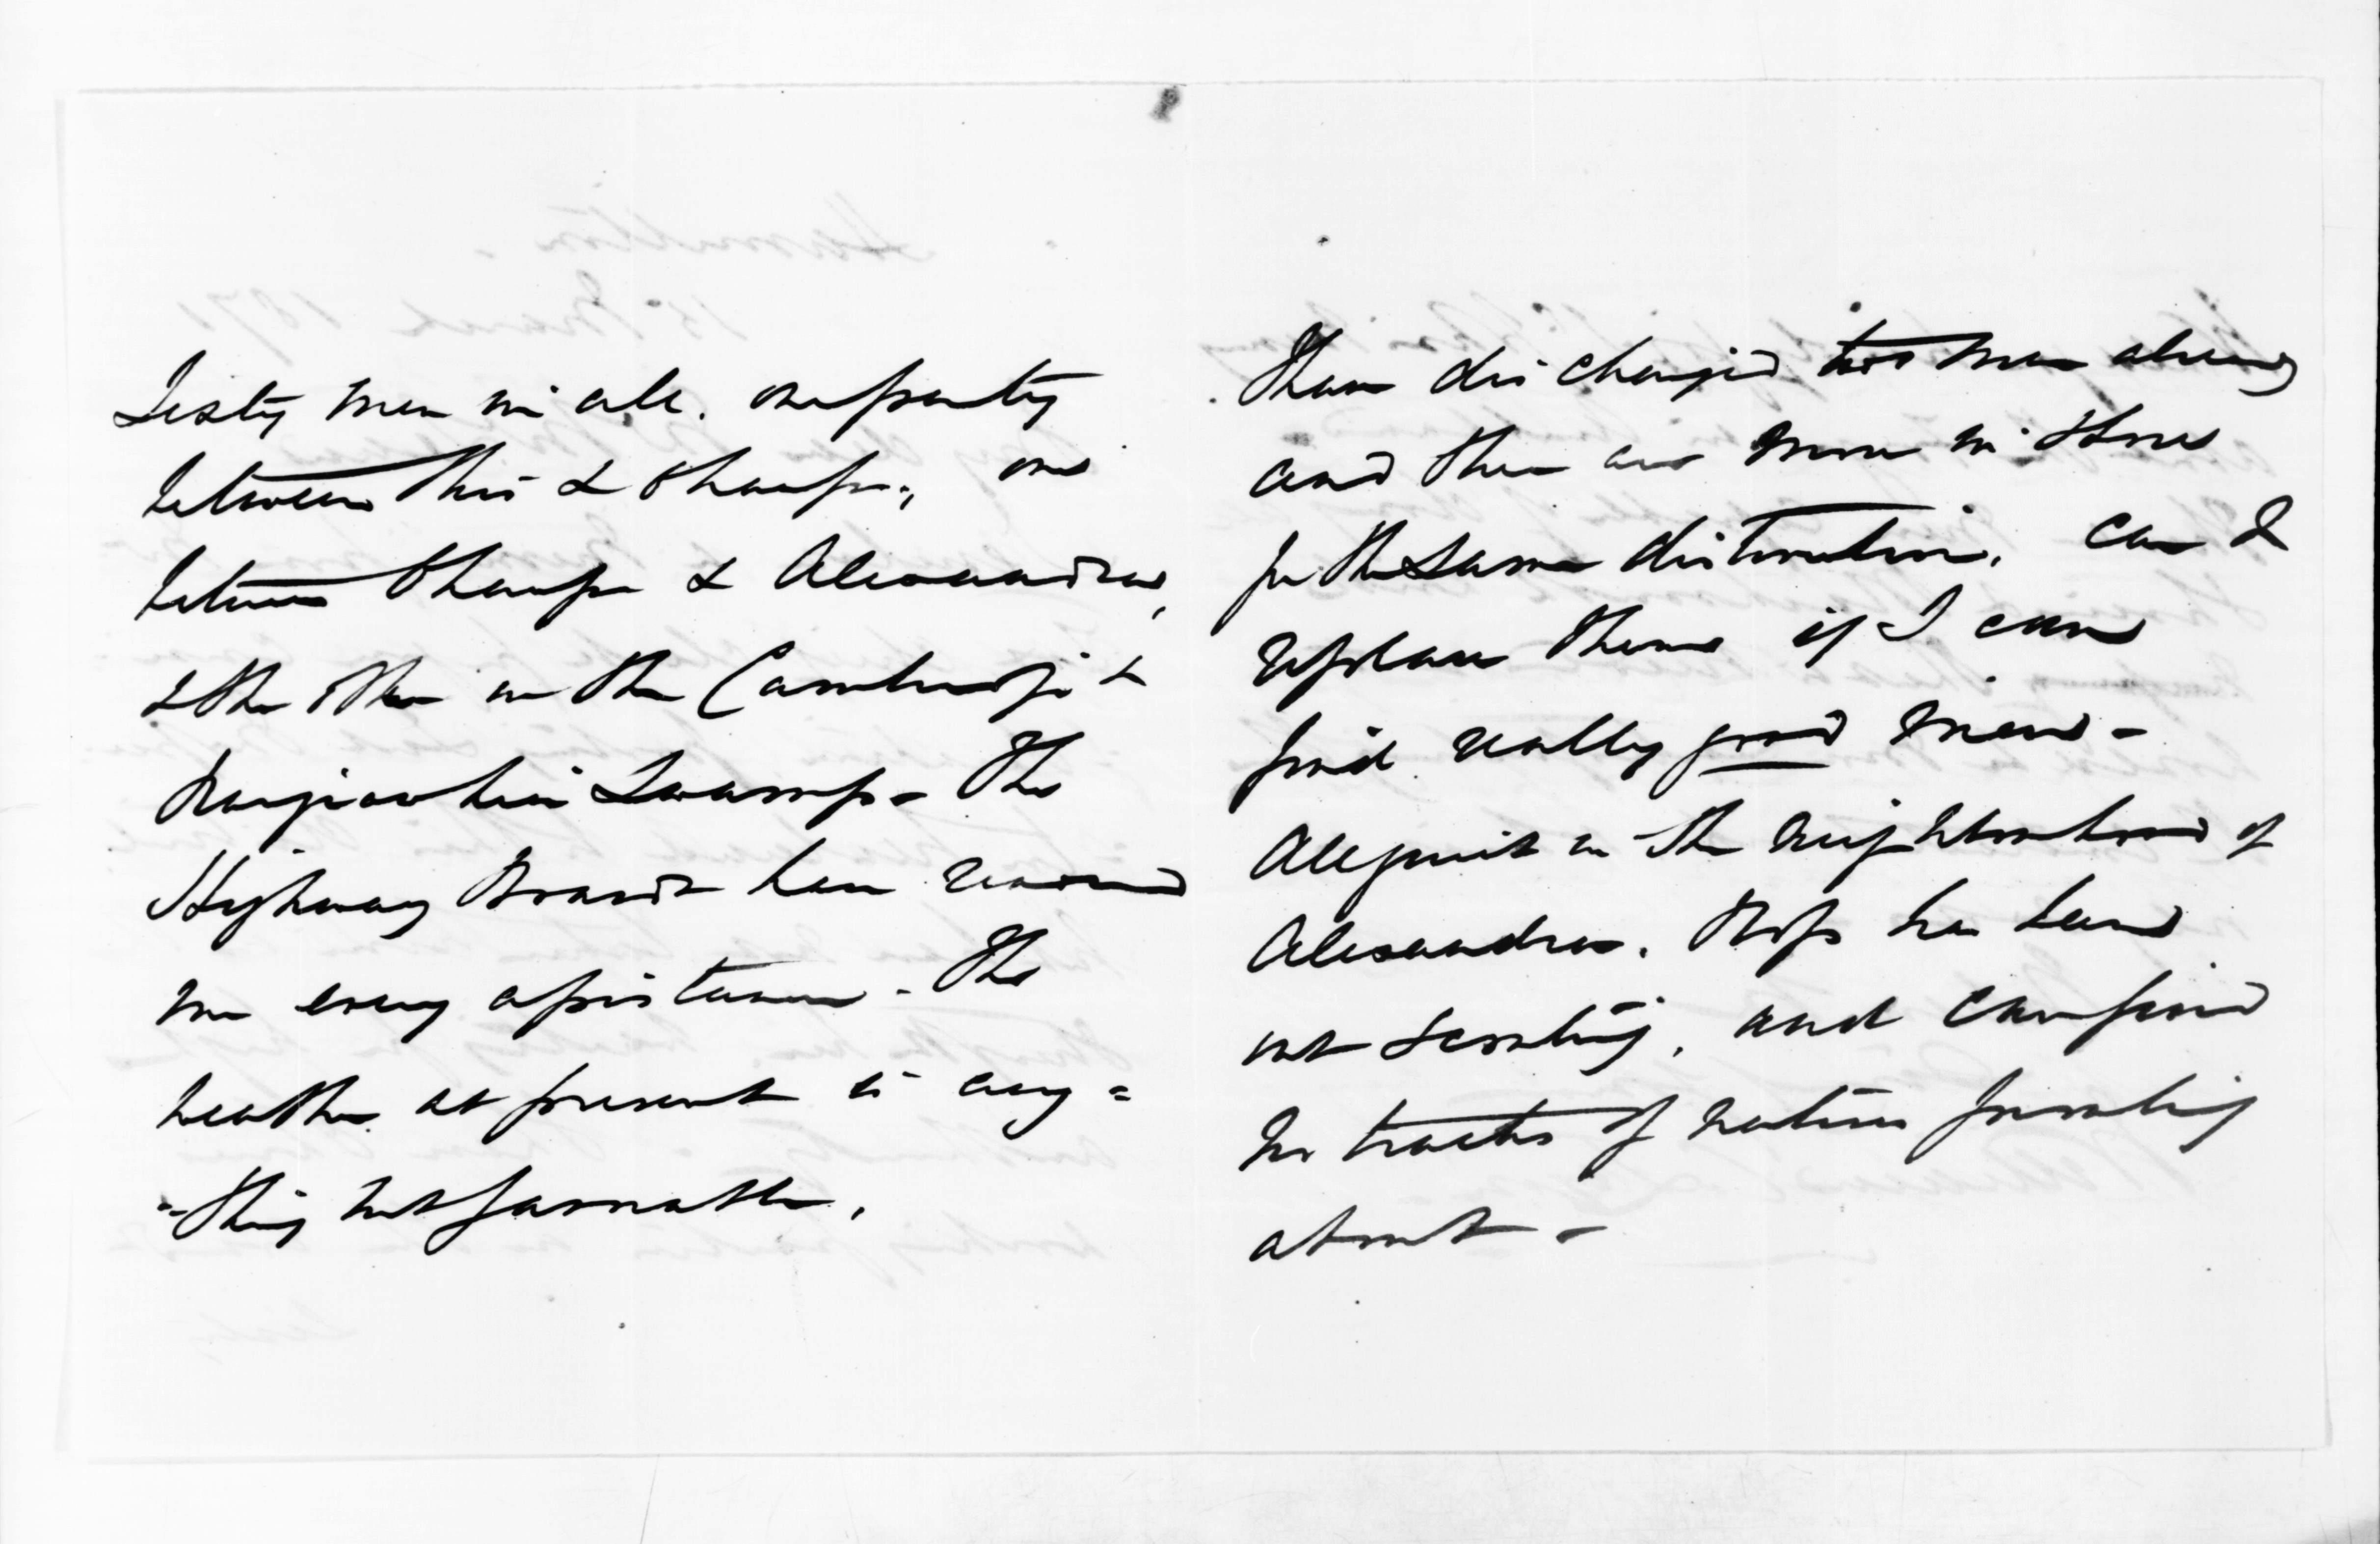 Sixty men in all. one party
between this & Ohaupo, one
between Ohaupo & Alexandra,
& the other in the Cambridge &
Rangiaohia Swamp - The
Highway Boards have
me every assistance - The
weather at present is any=
=thing but favorable.
I have discharged two men already
and there are more in store
for the same distinction. Can I
replace them if I can
find really good men -
All quiet in the neighbourhood of
Alexandra. Ross has been
out scouting, and can find
no tracts of natives prowling
about -